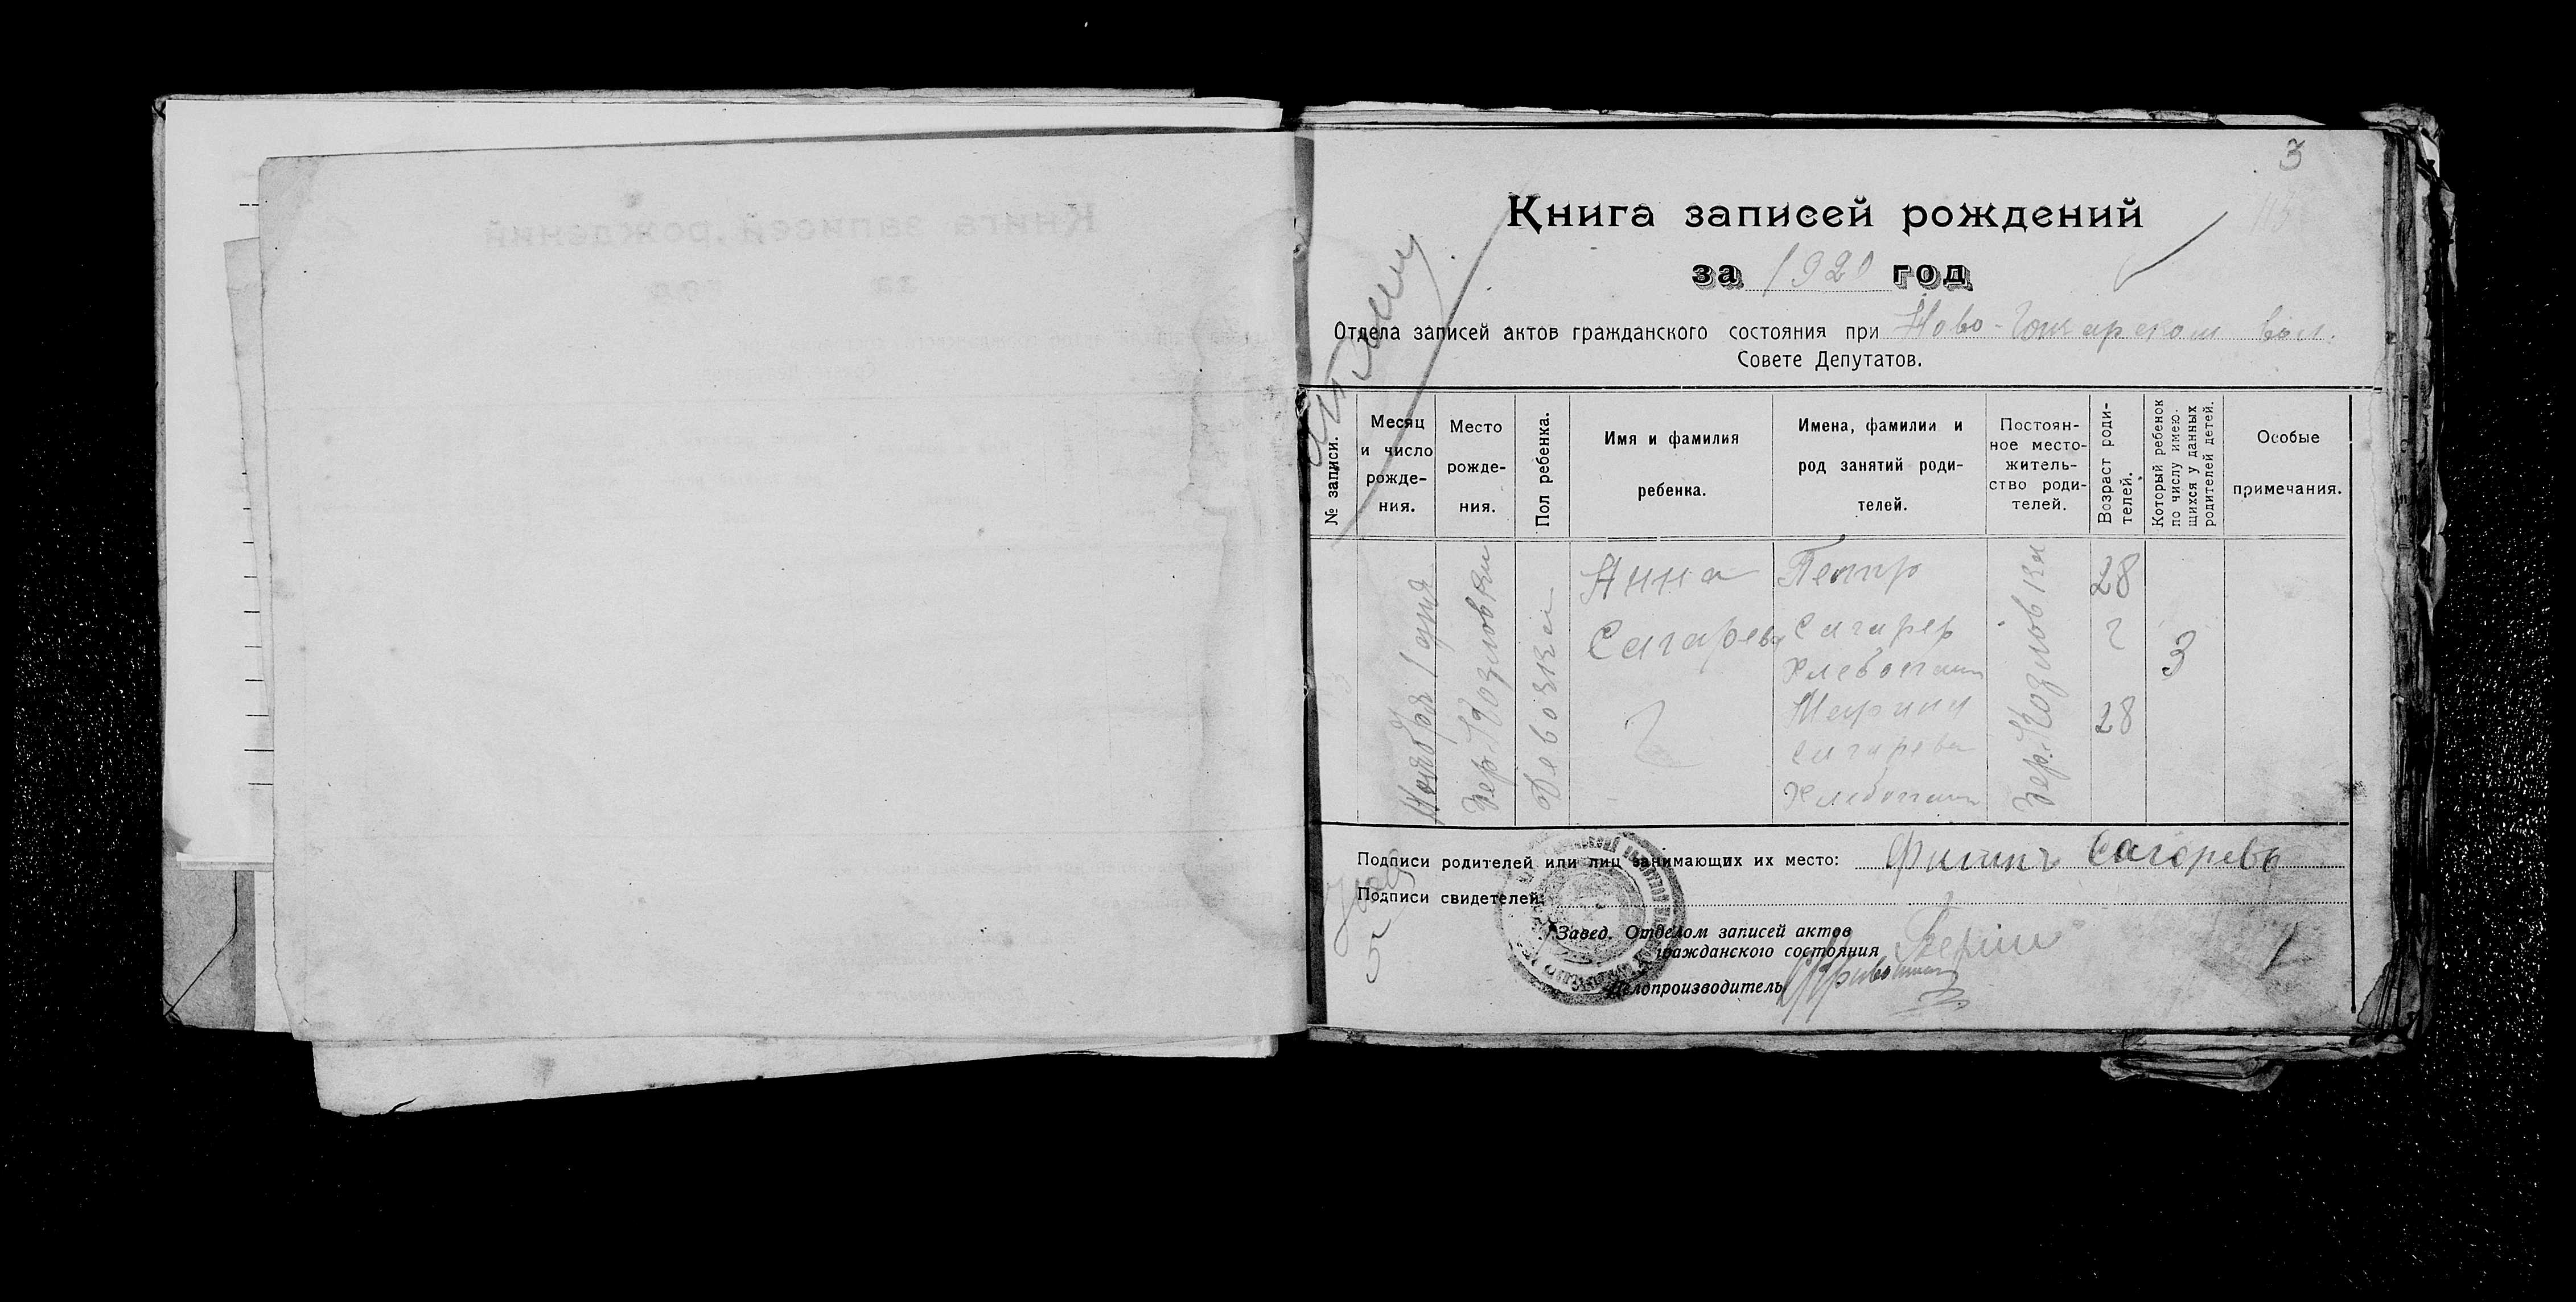 3
Книга записей рождений
за 1920 год
Отдела записей актов гражданского состояния при Ново- вол.
Совете Депутатов.
№ записи.
Месяц и число рожде-ния.
Место рожде-ния.
Пол ребенка.
Имя и фамилия ребенка.
Имена, фамилии и род занятий роди-телей.
Постоян-ное место-житель-ство роди-телей.
Возраст роди-телей.
Который ребенок по числу имею-щихся у данных родителей детей.
Особые примечания.
3
Ноября 1 дня
дер. Козловки
Девочка
Анна
Сагарева
Петр
Сагарев
Хлебопаш
Марина
Сагарева
Хлебопаш
дер. Козловки
28
28
3
Подписи родителей или лиц занимающих их место: Сагаревъ
Подписи свидетелей:
Завед. Отделом записей актов
гражданского состояния
Делопроизводитель
5